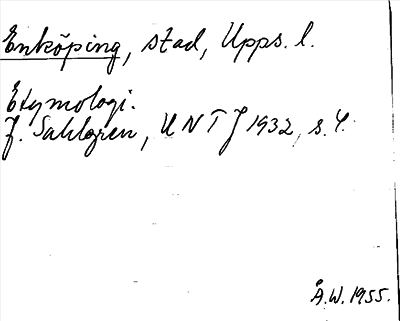 Enköping, stad, Upps. l.
Etymologi.
J. Sahlgren, UNTJ 1932, s. 4.
Å.W. 1955.